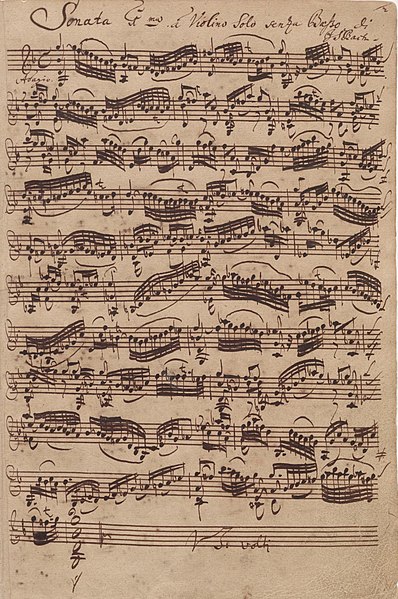 Sonata 1ma á Violino Solo senza Basso di
JSBach.
Adagio.
Si volti